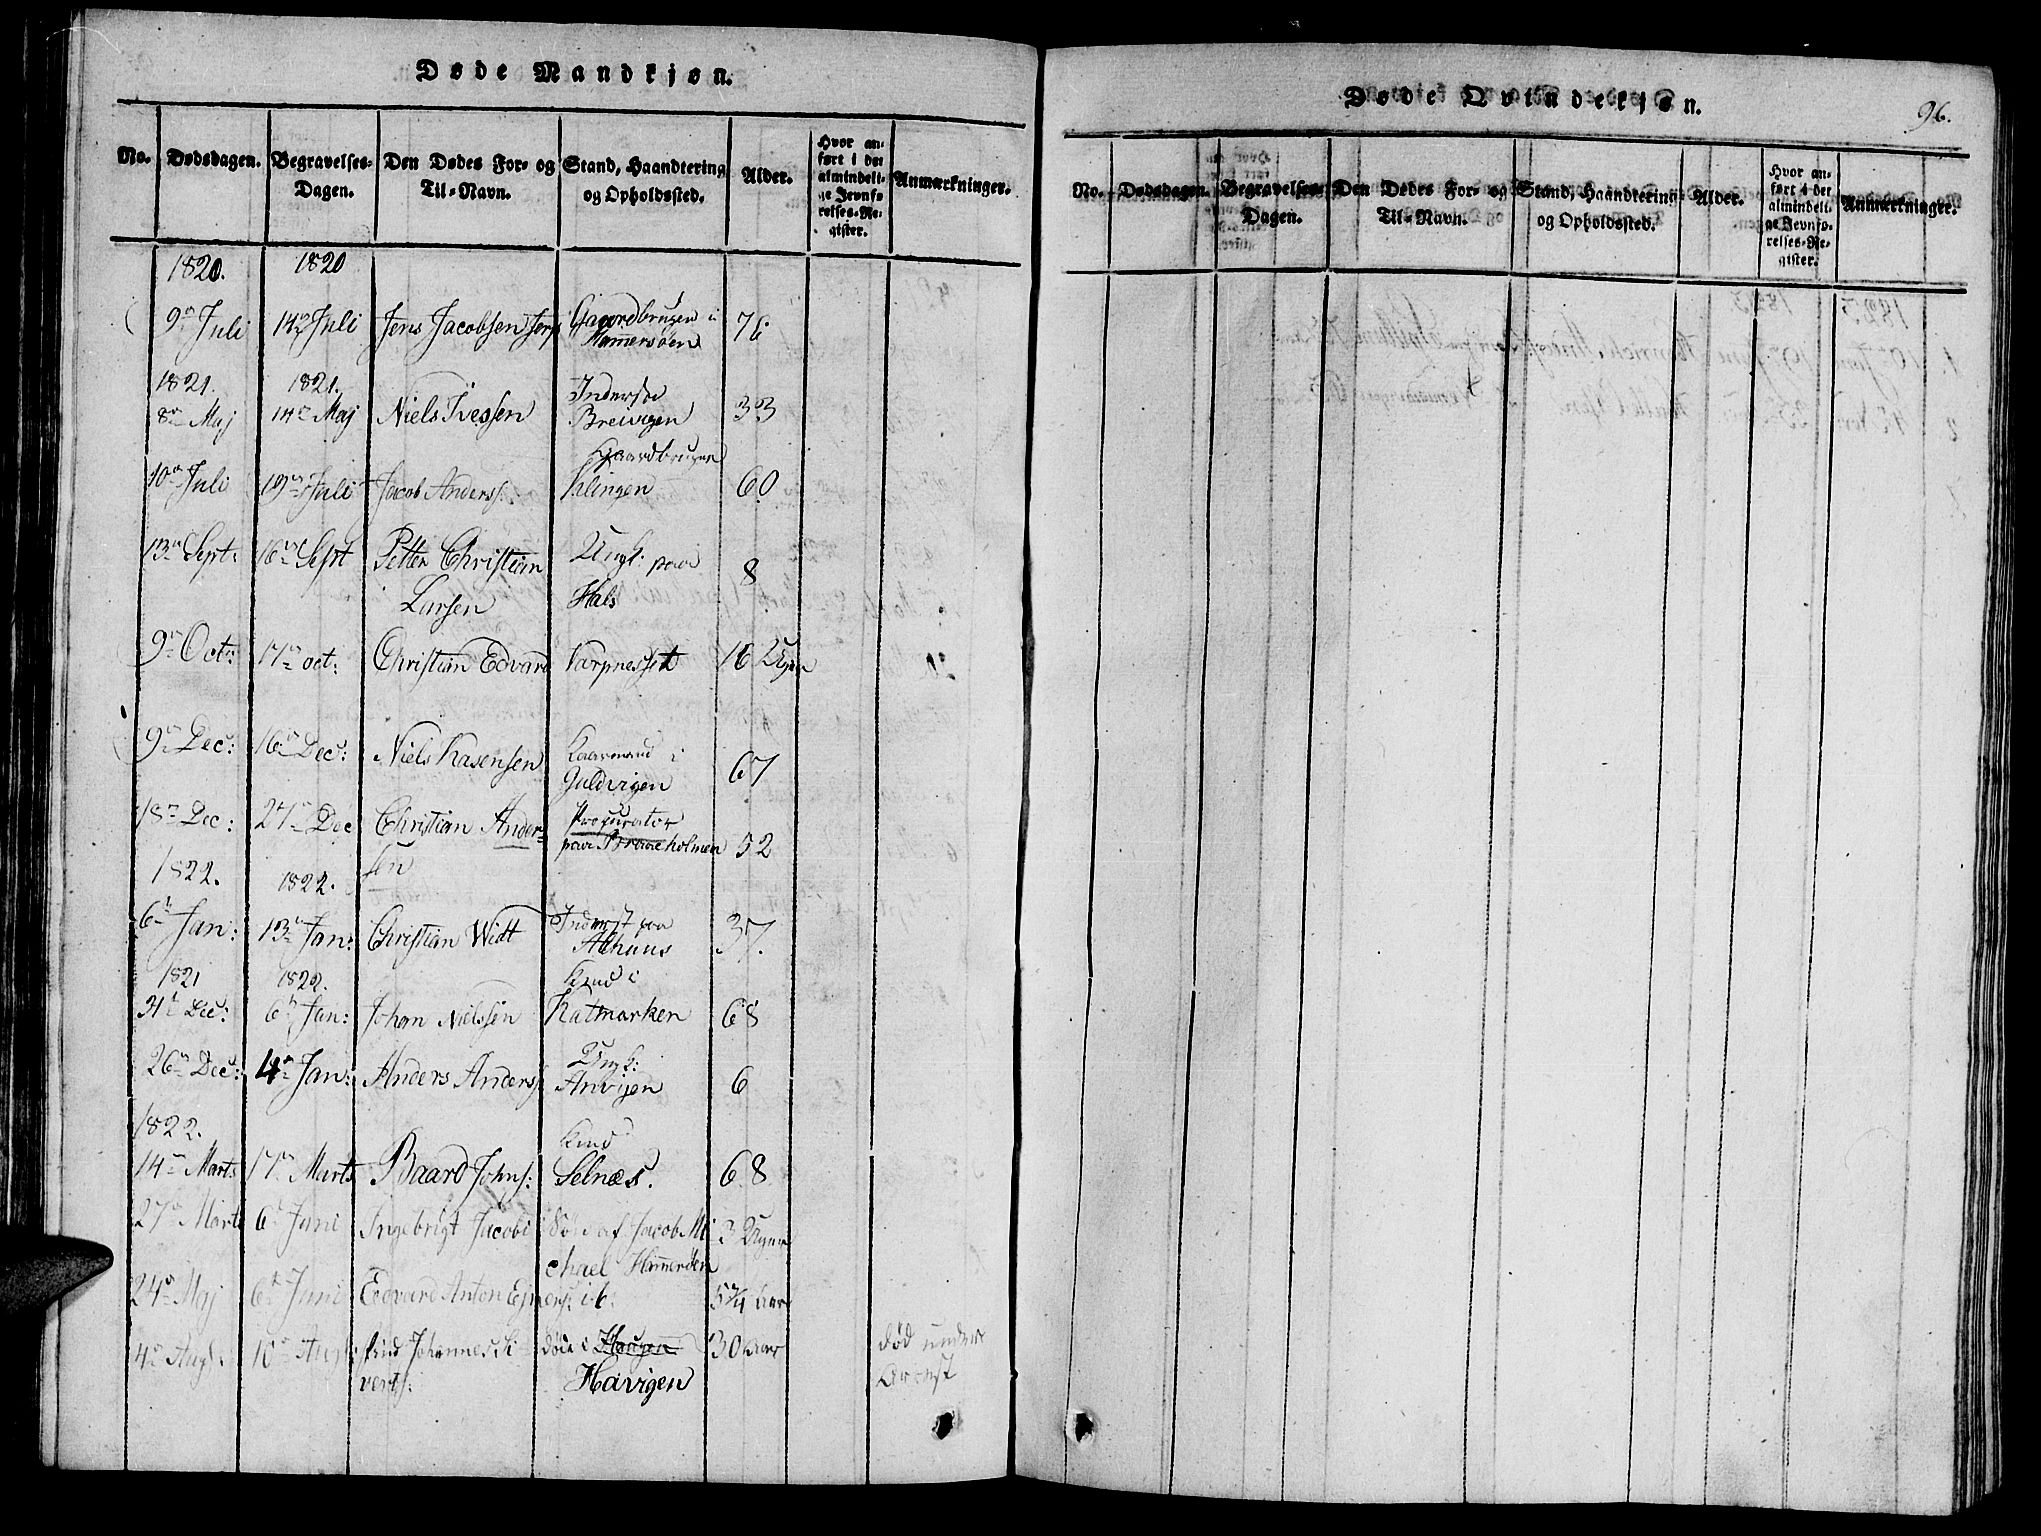 Døde Mandkjøn.
No. Dødsdagen. Begravelses-Dagen. Den Dødes For- og Til-Navn. Stand, Haandtering og Opholdssted. Alder. Hvor anført i det almindelige Jevnførelses-Register. Anmærkninger.
1820. 1820
9n Juli 14n Juli Jens Jacobsen Gaardbrugen i Hammersöen 76
1821. 1821.
8n Maj 14n Maj Niels Ivessen Brevigen 33
10n Juli 19n Juli Jacob Anders: Gaardbruger 60
13n Sept: 16n Sept Petter Christian Larsen Ungk: paa Hals 8
9n Oct: 17n oct: Christian Edvard Varpnesset 16 Uger
9n Dec: 16n Dec: Niels Hasensen Guldvigen 67
18n Dec: 27n Dec Christian Andersen Procurator paa Braaeholmen 52
1822. 1822.
6n Jan: 13n Jan: Christian Widt Inderst paa Alhuus 37.
1821 1822.
31t Dec: 6n Jan: Johan Nielssen Ratmarken 68
26n Dec: 4n Jan: Anders Anders: Ungk: Anvigen 6
1822.
14n Marts 17n Marts Baard Johns: Selnæs. 68
27n Marts 6n Juni Ingebrigt Jacobs: Søn af Jacob Michael Hammersöen 3 Uger
24n Maj 6n Juni Edvard Anton Ejners: ib: 5 3/4 Aar
4n Aug: 10n Aug: Johannes Siverts: Haugen Havigen 30 Aar død under Arrest
Døde Qvindekjøn.
96.
No. Dødsdagen. Begravelses-Dagen. Den Dødes For- og Til-Navn. Stand, Haandtering og Opholdssted. Alder. Hvor anført i det almindelige Jevnførelses-Register. Anmærkninger.